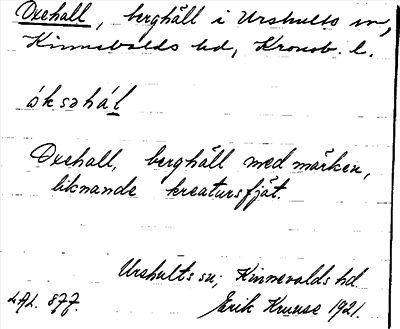 Oxehall, berghäll i Urshults sn,
Kinnevalds hd, Kronob. l.
óksəhál
Oxehall, berghäll med märken,
liknande kreatursfjät.
Urshults sn, Kinnevalds hd
LAL. 877. Erik Kruuse 1921.